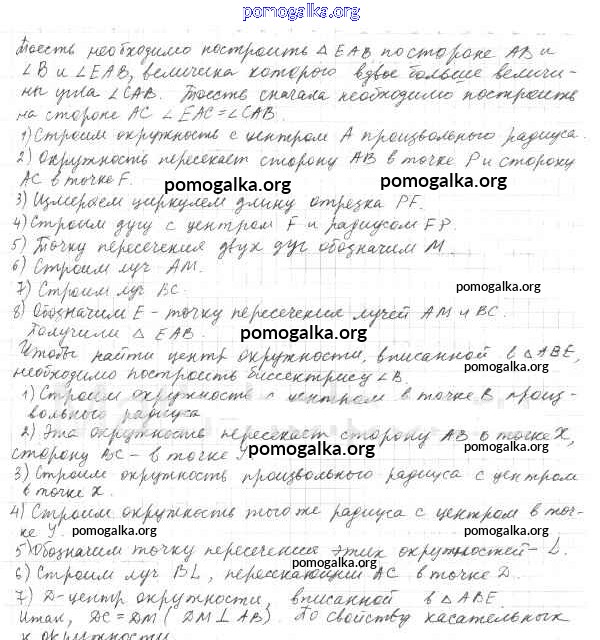 pomogalka.org
Тоесть необходимо построить △ EAB по стороне AB и
∠B и ∠EAB, величина которого вдвое больше величи-
ны угла ∠CAB. Тоесть сначала необходимо построить
на стороне AC ∠EAC=∠CAB.
1) Строим окружность с центром A произвольного радиуса.
2) Окружность пересекает сторону AB в точке P и сторону
AC в точке F.
pomogalka.org pomogalka.org
3) Измеряем циркулем длину отрезка PF.
4) Строим дугу с центром F и радиусом FP.
5) Точку пересечения двух дуг обозначим M.
6) Строим луч AM.
7) Строим луч BC.
pomogalka.org
8) Обозначим E - точку пересечения лучей AM и BC.
Получили △ EAB.
pomogalka.org
Чтобы найти центр окружности, вписанной в △ABE,
необходимо построить биссектрису ∠B.
1) Строим окружность с центром в точке B произ-
вольного радиуса
2) Эта окружность пересекает сторону AB в точке X,
сторону BC - в точке Y
pomogalka.org
3) Строим окружность произвольного радиуса с центром
в точке X.
4) Строим окружность того же радиуса с центром в точ-
ке Y.
pomogalka.org pomogalka.org
5) Обозначим точку пересечения этих окружностей - L.
6) Строим луч BL, пересекающий AC в точке D.
pomogalka.org
7) D - центр окружности, вписанной в △ABE
Итак, DC = DM (DM ⊥ AB). По свойству касательных
к окружности